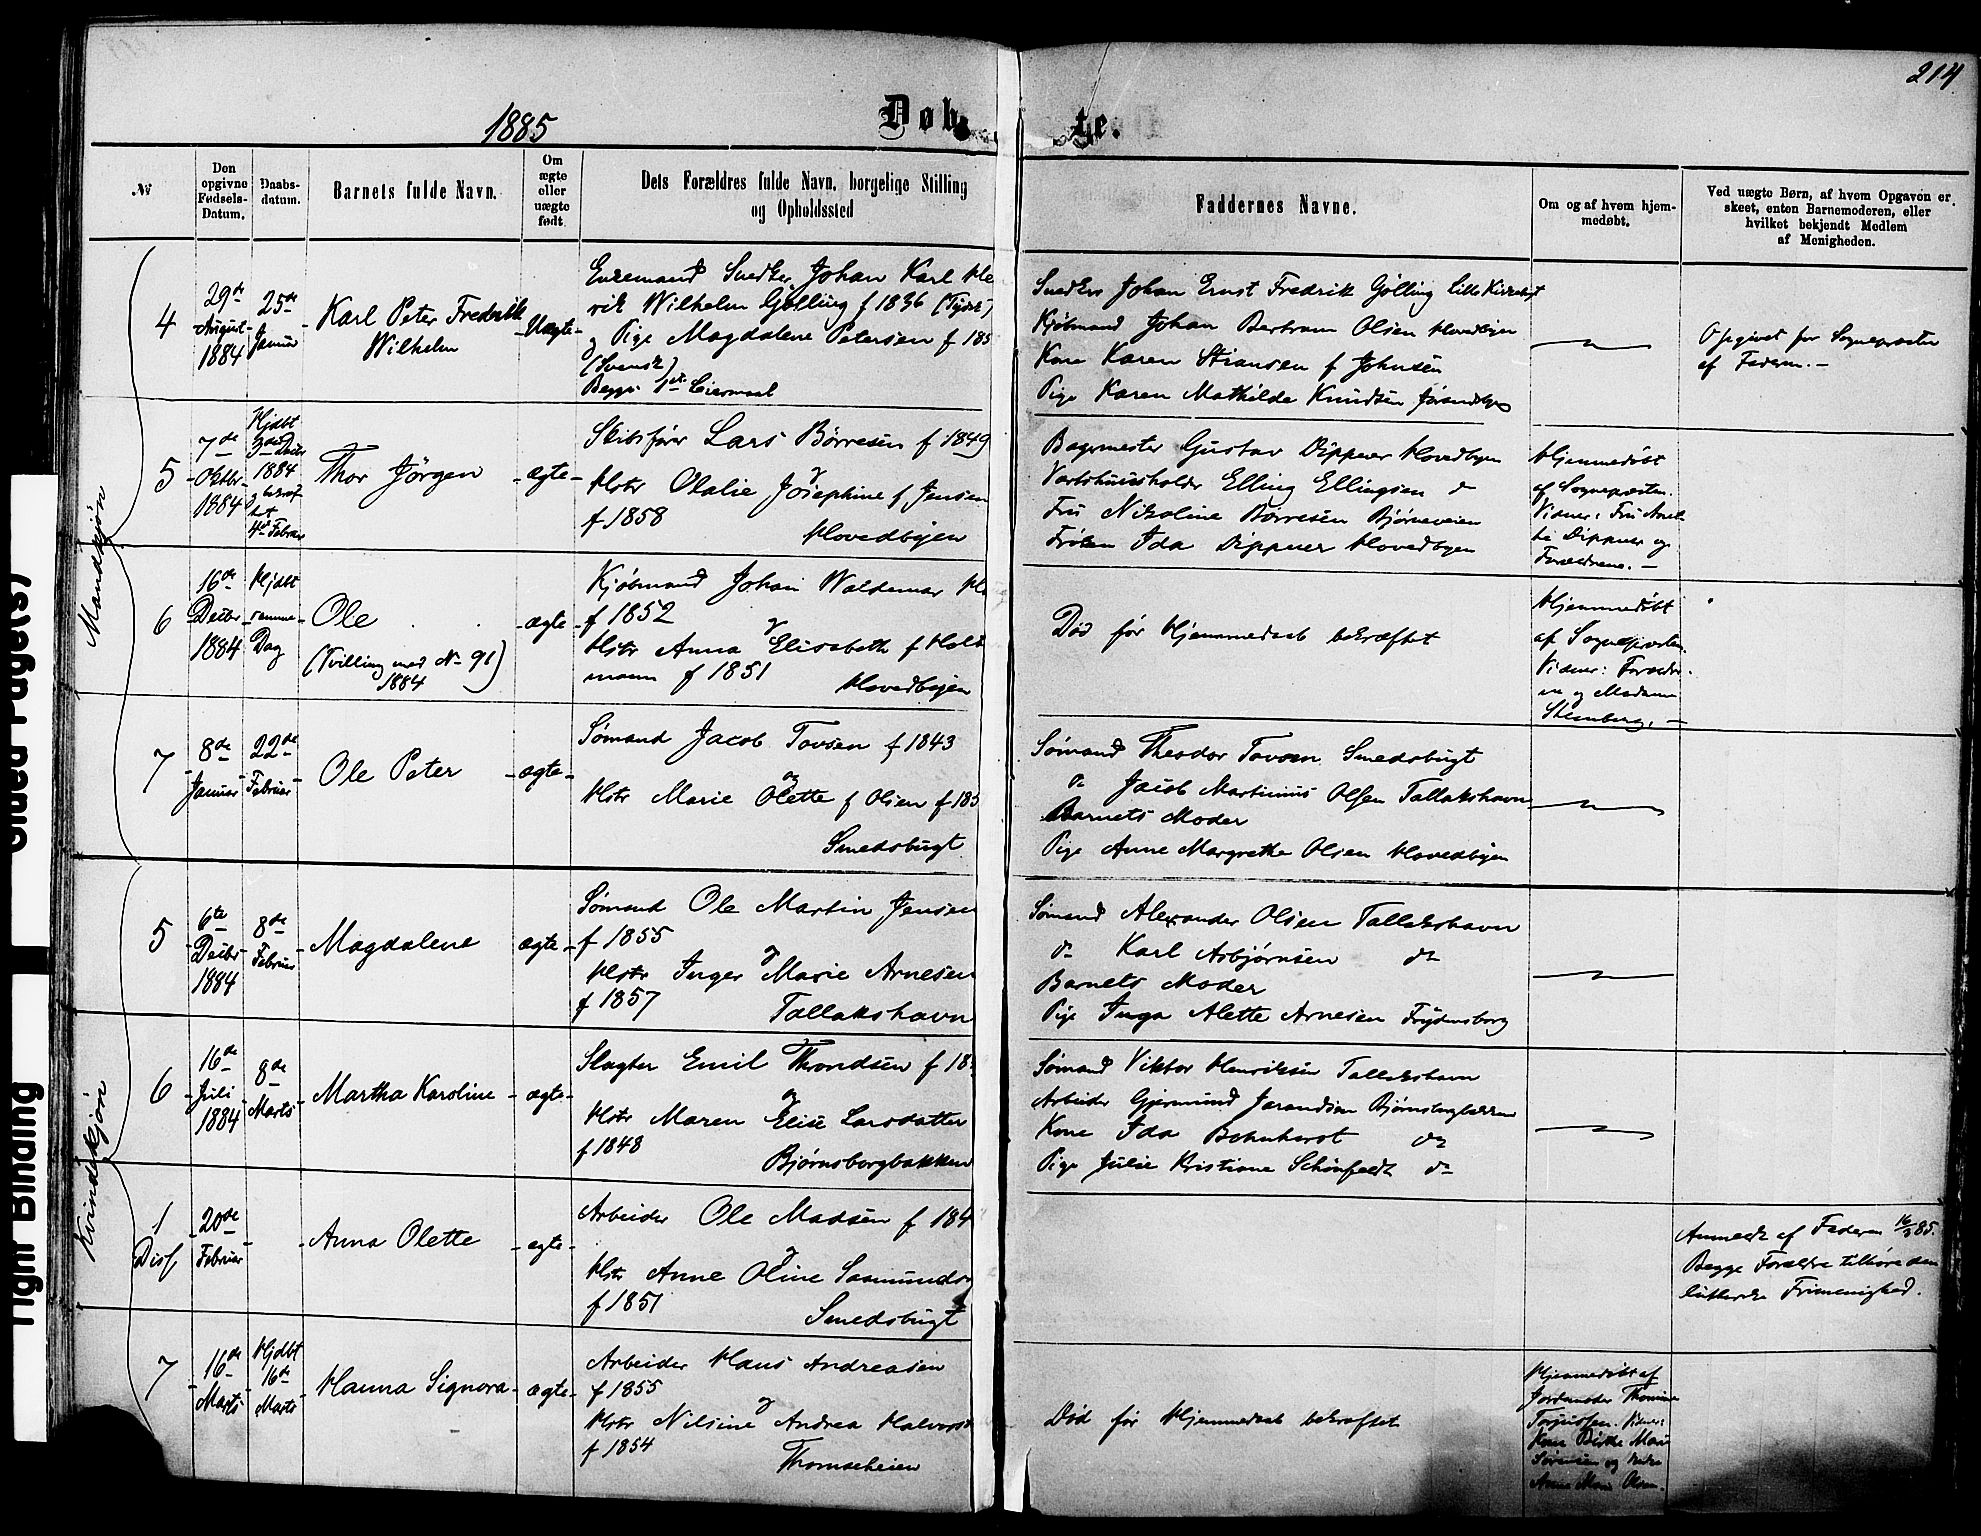 214
1885
Døb
te.
№
Den opgivne Fødsels-Datum.
Daabs-datum.
Barnets fulde Navn.
Om ægte eller uægte født
Dets Forældres fulde Navn, borgelige Stilling
og Opholdssted
Faddernes Navne.
Om og af hvem hjem-
medøbt.
Ved uægte Børn, af hvem Opgaven er
skeet, enten Barnemoderen, eller
hvilket bekjendt Medlem
af Menigheden.
Mandkjøn
4
29de
August
1884
25de
Januar
Karl Peter Fredrik
Wilhelm
Uægte
Enkemand Snedker Johan Karl He
rik Wilhelm Gölling f 1836 (Tydsk)
og Pige Magdalene Petersen f 185
(Svensk)
Begges 1ste Leiermaal
Snedker Johan Ernst Fredrik Gölling
Kjøbmand Johan Bertram Olsen Hovedbyen
Kone Karen Stiansen f Johnsen
Pige Karen Mathilde Knudsen
Opgivet for Sognepresten
af Faderen.—
5
7de
Oktbr
1884
Hjdbt
3die Decbr
1884
og bekræf
tet
4de Februar
Thor Jörgen
ægte
Skibsfører Lars Börresen f 1849
og
Hstr Olalie Josephine f Jensen
f 1858
Hovedbyen
Bagermester Gustav Dippner Hovedbyen
Vertshuusholder Elling Ellingsen do
Fru Nikoline Børresen Bjørneveien
Frøken Ida Dippner Hovedbyen
Hjemmedøbt
af Sognepresten.
Vidner: Fru
Dippner og
Forældrene.—
6
16de
Decbr
1884
Hjdbt
samme
Dag
Ole
(Tvilling med No 91)
1884
ægte
Kjøbmand Johan Waldemar
f 1852
og
Hstr Anna Elisabeth f Hold
mann f 1851
Hovedbyen
Død før Hjemmedaab bekræftet
Hjemmedøbt
af Sognepresten.
Vidner: Forældre
ne og Madame
Stemberg.—
7
8de
Januar
22de
Februar
Ole Peter
ægte
Sømand Jacob Tovsen f 1843
og
Hstr Marie Olette f Olsen f 185
Smedsbugt
Sømand Theodor Tovsen Smedsbugt
do Jacob Martinius Olsen Tallakshavn
Barnets Moder
Pige Anne Margrethe Olsen Hovedbyen
Kvindekjøn
5
6te
Decbr
1884
8de
Februar
Magdalene
ægte
Sømand Ole Martin Jensen
f 1855
og
Hstr Inger Marie Arnesen
f 1857
Tallakshavn
Sømand Alexander Olsen Tallakshavn
do Karl Asbjørnsen do
Barnets Moder
Pige Inga Alette Arnesen Frydensborg
6
16de
Juli
1884
8de
Marts
Martha Karoline
ægte
Slagter Emil Throndsen f 18
og
Hstr Maren Elise Larsdatter
f 1848
Bjørnsborgbakken
Sømand Viktor Henriksen Tallakshavn
Arbeider Gjermund Jorandsen Bjørnsborgbakken
Kone Ida Behnherst do
Pige Julie Kristiane Schönfeldt do
1
Diss.
20de
Februar
Anna Olette
ægte
Arbeider Ole Madsen f 184
og
Hstr Anne Oline Saamunds
f 1851
Smedsbugt
Anmeldt af Faderen 16/3 85.
Begge Forældre tilhøre den
lutherske Frimenighed.
7
16de
Marts
Hjdbt
16de
Marts
Hanna Signora
ægte
Arbeider Hans Andreasen
f 1855
og
Hstr Nilsine Andrea Halvors
f 1854
Thomasheien
Død før Hjemmedaab bekræftet
Hjemmedøbt af
Jordmoder Thomine
Torjussen. Vidner:
Kone Marie
Sørensen og
Anne Marie Olsen.
Tight Binding